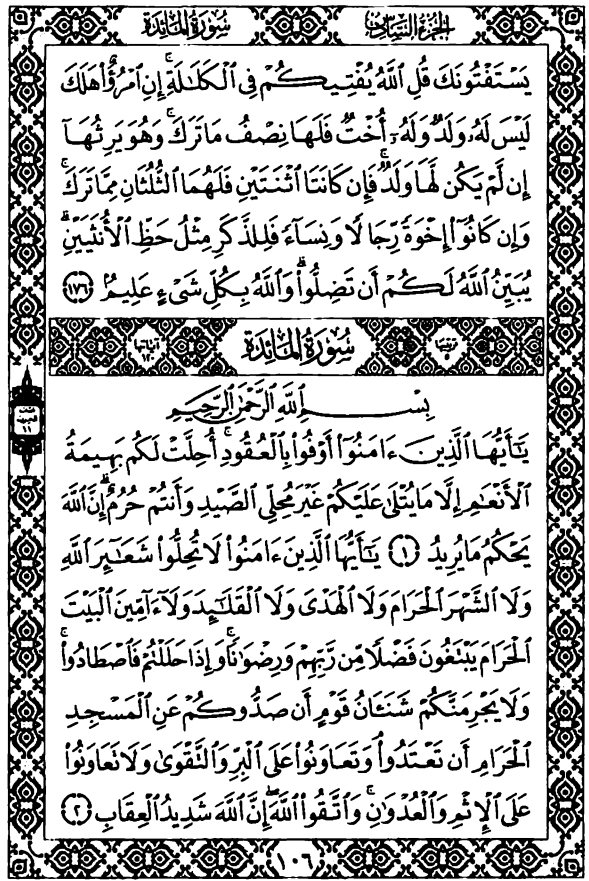 الجزء السادس سورة المائدة
يَسْتَفْتُونَكَ قُلِ ٱللَّهُ يُفْتِيكُمْ فِى ٱلْكَلَـٰلَةِ ۚ إِنِ ٱمْرُؤٌا۟ هَلَكَ
لَيْسَ لَهُۥ وَلَدٌ وَلَهُۥٓ أُخْتٌ فَلَهَا نِصْفُ مَا تَرَكَ ۚ وَهُوَ يَرِثُهَآ
إِن لَّمْ يَكُن لَّهَا وَلَدٌ ۚ فَإِن كَانَتَا ٱثْنَتَيْنِ فَلَهُمَا ٱلثُّلُثَانِ مِمَّا تَرَكَ ۚ
وَإِن كَانُوٓا۟ إِخْوَةً رِّجَالًا وَنِسَآءً فَلِلذَّكَرِ مِثْلُ حَظِّ ٱلْأُنثَيَيْنِ ۗ
يُبَيِّنُ ٱللَّهُ لَكُمْ أَن تَضِلُّوا۟ ۗ وَٱللَّهُ بِكُلِّ شَىْءٍ عَلِيمٌۢ ١٧٦
ترتيبها ٥ سورة المائدة آياتها ١٢٠
بِسْمِ ٱللَّهِ ٱلرَّحْمَـٰنِ ٱلرَّحِيمِ
يَـٰٓأَيُّهَا ٱلَّذِينَ ءَامَنُوٓا۟ أَوْفُوا۟ بِٱلْعُقُودِ ۚ أُحِلَّتْ لَكُم بَهِيمَةُ
ٱلْأَنْعَـٰمِ إِلَّا مَا يُتْلَىٰ عَلَيْكُمْ غَيْرَ مُحِلِّى ٱلصَّيْدِ وَأَنتُمْ حُرُمٌ ۗ إِنَّ ٱللَّهَ
يَحْكُمُ مَا يُرِيدُ ١ يَـٰٓأَيُّهَا ٱلَّذِينَ ءَامَنُوا۟ لَا تُحِلُّوا۟ شَعَـٰٓئِرَ ٱللَّهِ
وَلَا ٱلشَّهْرَ ٱلْحَرَامَ وَلَا ٱلْهَدْىَ وَلَا ٱلْقَلَـٰٓئِدَ وَلَآ ءَآمِّينَ ٱلْبَيْتَ
ٱلْحَرَامَ يَبْتَغُونَ فَضْلًا مِّن رَّبِّهِمْ وَرِضْوَٰنًا ۚ وَإِذَا حَلَلْتُمْ فَٱصْطَادُوا۟ ۚ
وَلَا يَجْرِمَنَّكُمْ شَنَـَٔانُ قَوْمٍ أَن صَدُّوكُمْ عَنِ ٱلْمَسْجِدِ
ٱلْحَرَامِ أَن تَعْتَدُوا۟ ۘ وَتَعَاوَنُوا۟ عَلَى ٱلْبِرِّ وَٱلتَّقْوَىٰ ۖ وَلَا تَعَاوَنُوا۟
عَلَى ٱلْإِثْمِ وَٱلْعُدْوَٰنِ ۚ وَٱتَّقُوا۟ ٱللَّهَ ۖ إِنَّ ٱللَّهَ شَدِيدُ ٱلْعِقَابِ ٢
١٠٦